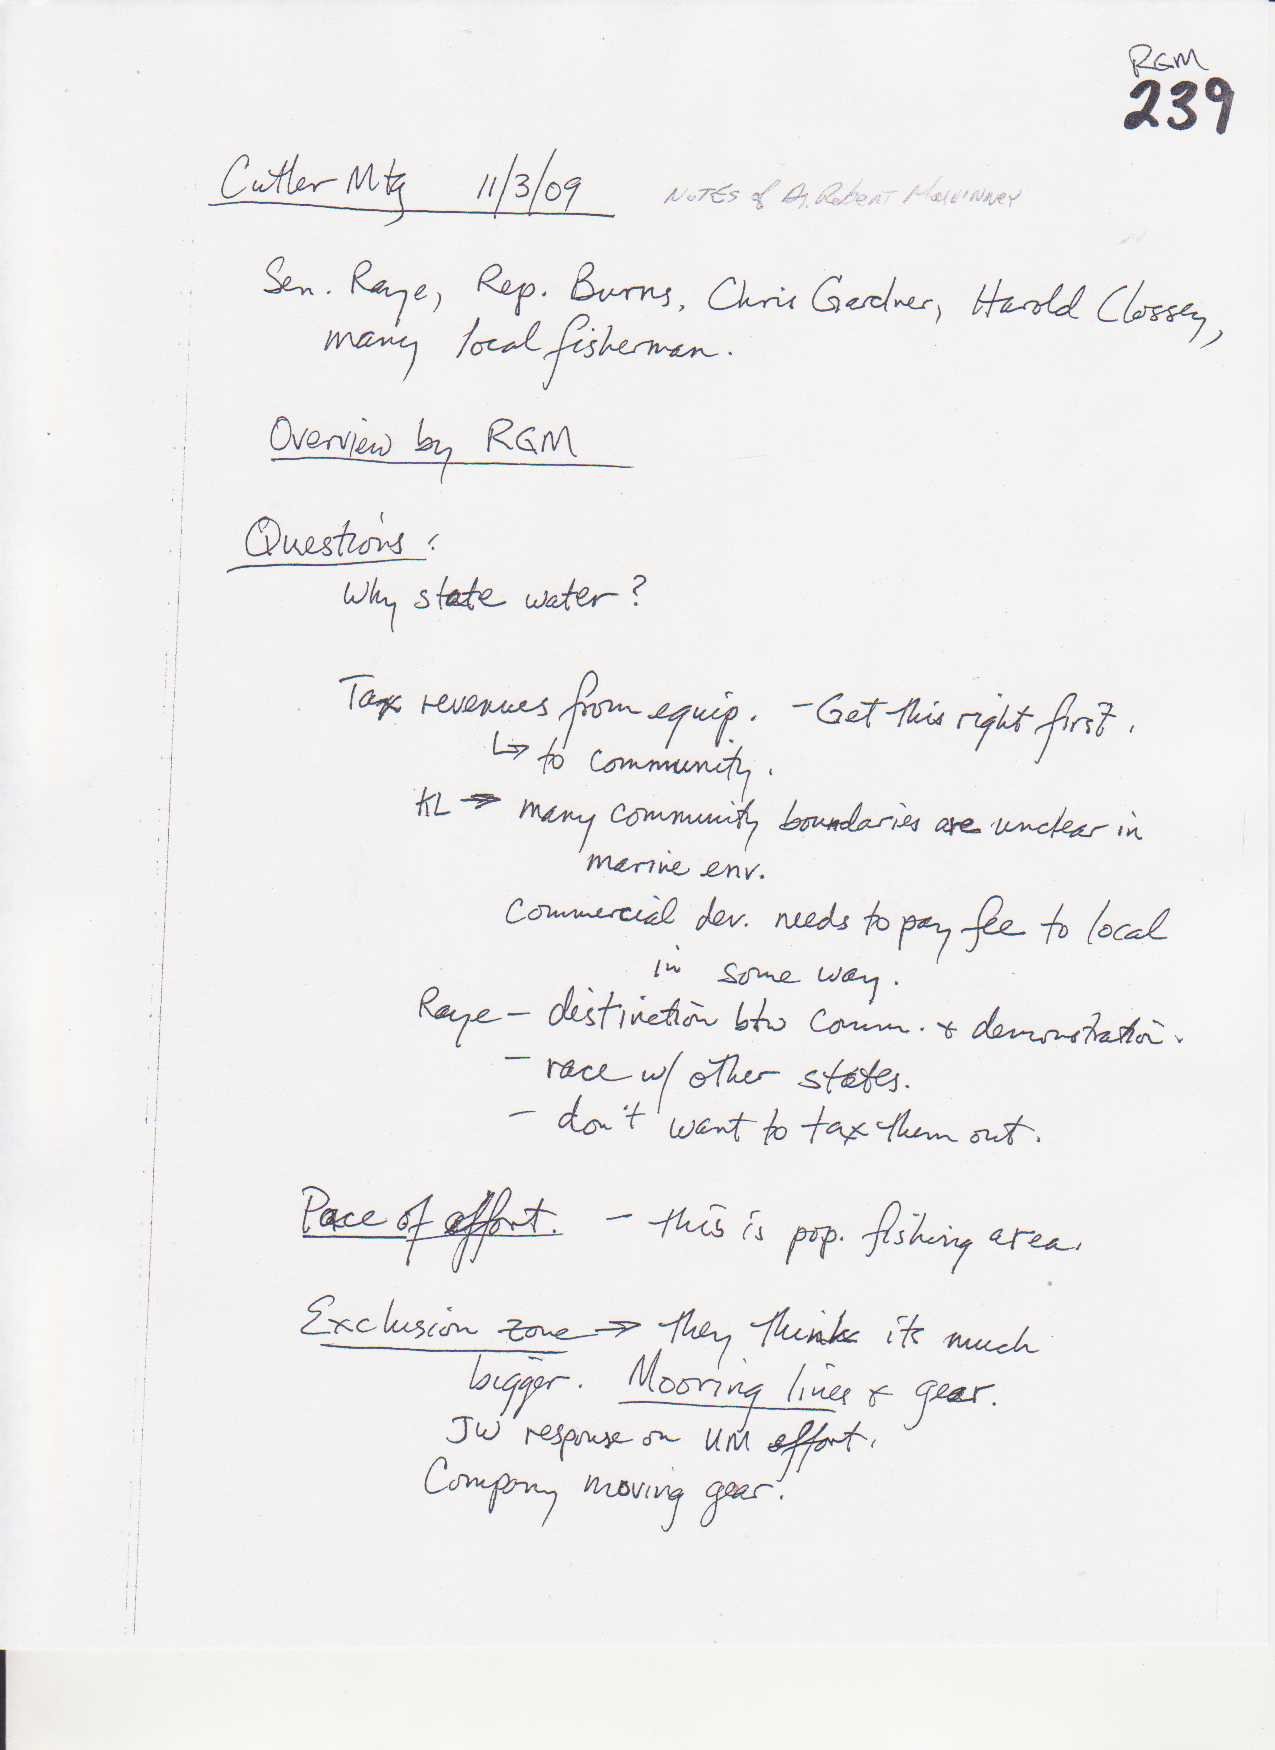 RGM
239
Cutler Mtg 11/3/09 NOTES of Dr. Robert
Sen. Raye, Rep. Burns, Chris Gardner, Harold Clossey,
many local fisherman.
Overview by RGM
Questions:
Why state water?
Tax revenues from equip. - Get this right first.
↳ to community.
KL → many community boundaries are unclear in
marine env.
Commercial dev. needs to pay fee to local
in some way.
Raye - distinction btw comm. & demonstration.
- race w/ other states.
- don't want to tax them out.
Pace of effort. - this is pop. fishing area.
Exclusion zone → they think its much
bigger. Mooring lines & gear.
JW response on UM effort.
Company moving gear.